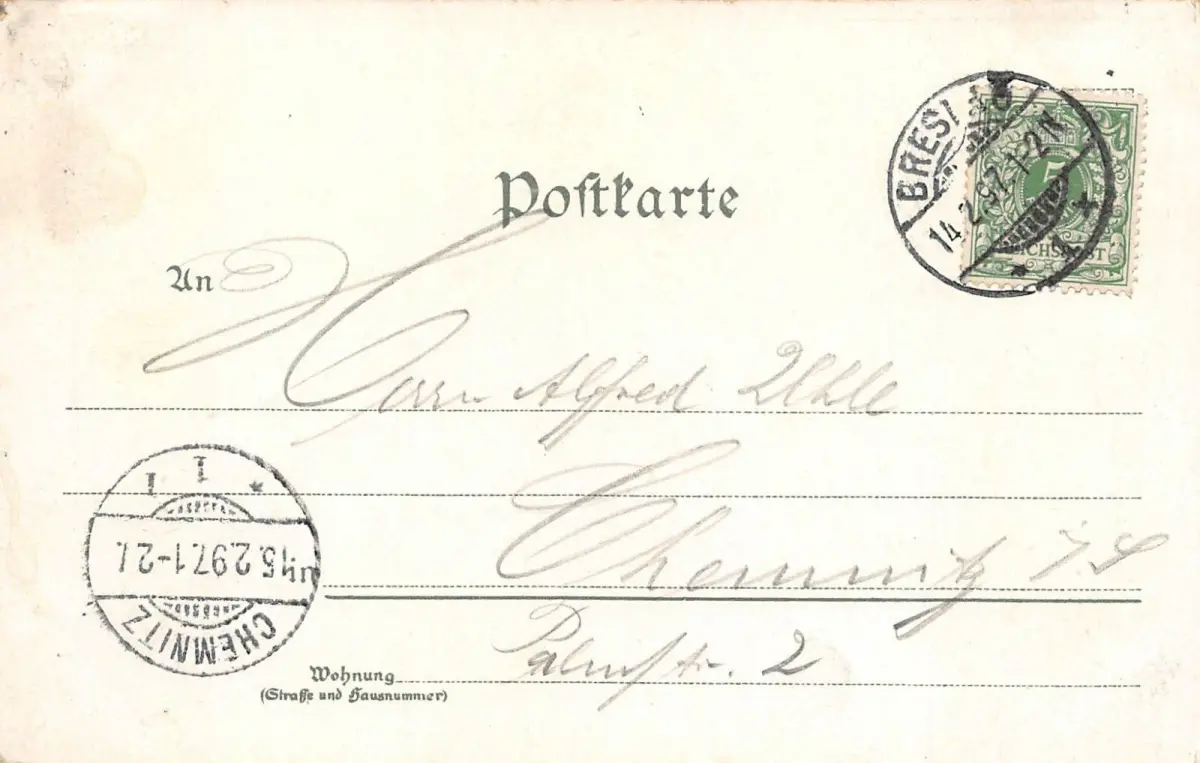 Postkarte
BRESLAU
14.2.97. 1-2N
* 1 *
5
REICHSPOST
An
Herrn Alfred Uhle
Chemnitz i/S
CHEMNITZ
15.2.97. 1-2
1
Palmstr. 2
Wohnung
(Straße und Hausnummer)